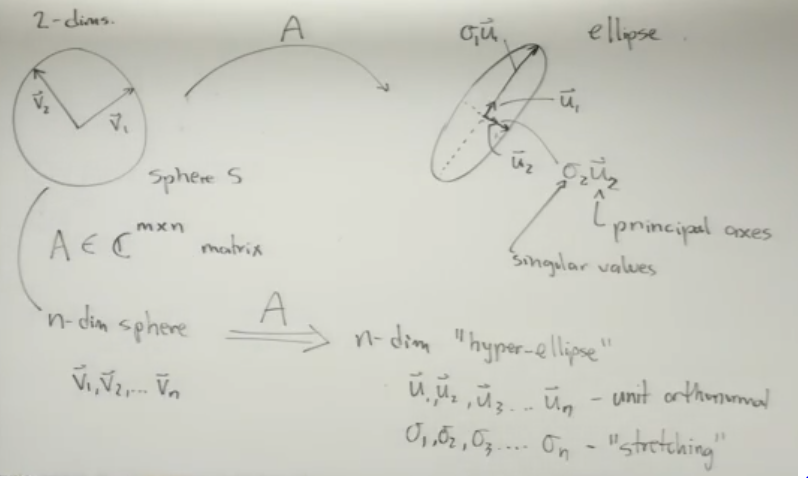 2-dims.
A
σ₁u⃗₁
ellipse
v⃗₂
v⃗₁
u⃗₁
u⃗₂
σ₂u⃗₂
sphere S
principal axes
singular values
A ∈ ℂ^{m×n} matrix
n-dim sphere
A
n-dim "hyper-ellipse"
v⃗₁, v⃗₂, ... v⃗ₙ
u⃗₁, u⃗₂, u⃗₃ ... u⃗ₙ - unit orthonormal
σ₁, σ₂, σ₃ .... σₙ - "stretching"